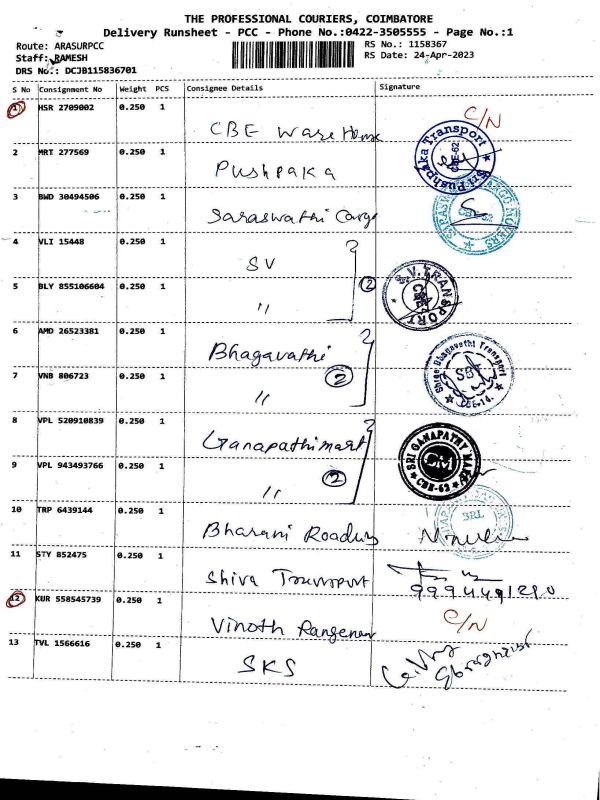 THE PROFESSIONAL COURIERS, COIMBATORE
Delivery Runsheet - PCC - Phone No.:0422-3505555 - Page No.:1
Route: ARASURPCC
RS No.: 1158367
Staff: RAMESH
RS Date: 24-Apr-2023
DRS No.: DCJB115836701
S No Consignment No Weight PCS Consignee Details Signature
1 HSR 2709002 0.250 1
C/N
CBE Ware House
2 MRT 277569 0.250 1
Sri Pushpaka Transport CBE-62
Pushpaka
3 BWD 30494506 0.250 1
Saraswathi Cargo
4 VLI 15448 0.250 1
SV
5 BLY 855106604 0.250 1 2
S.V. TRANSPORT
"
6 AMD 26523381 0.250 1
Bhagavathi
Shree Bhagavathi Transport SBT CBE-14.
7 VNB 806723 0.250 1
2
"
8 VPL 520910839 0.250 1
Ganapathimart
SRI GANAPATHY MAIL CBE-62
9 VPL 943493766 0.250 1
2
"
10 TRP 6439144 0.250 1
SRL
Bharani Roadways
11 STY 852475 0.250 1
Shiva Transport
9994491290
12 KUR 558545739 0.250 1
C/N
Vinoth Rangenan
13 TVL 1566616 0.250 1
SKS